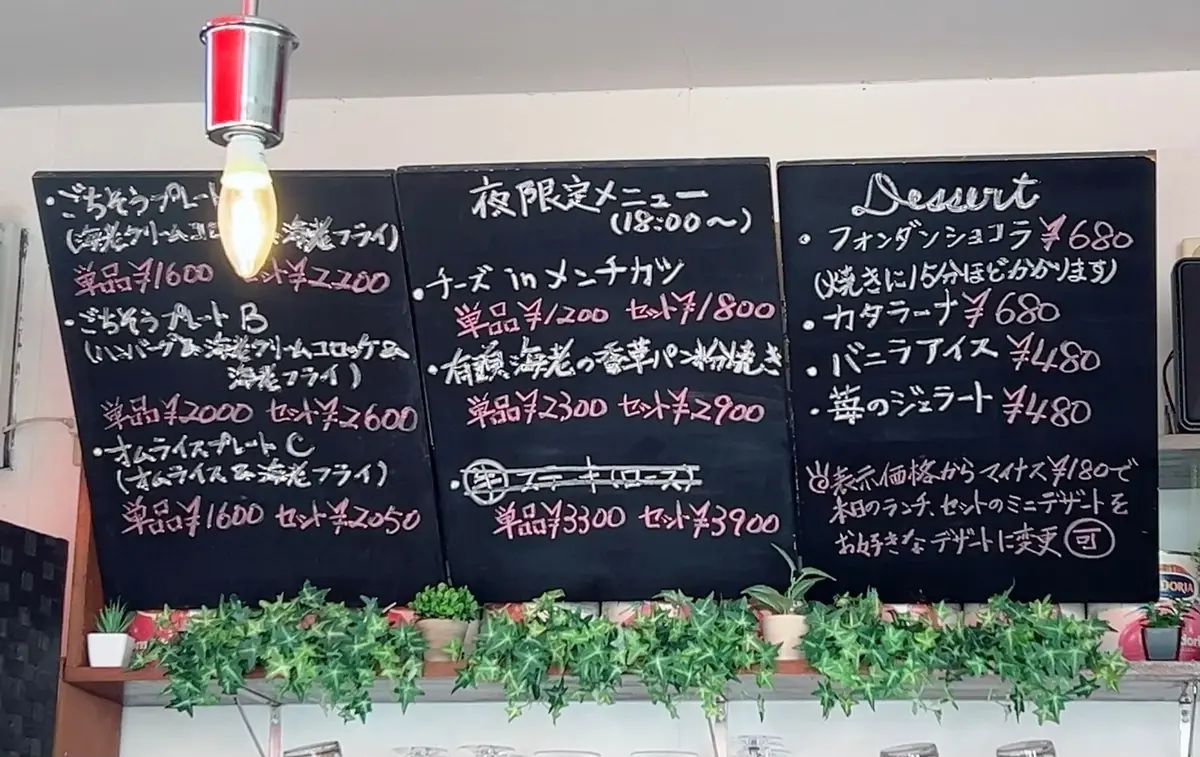 ・ごちそうプレート
(海老クリームコ 海老フライ)
単品¥1600 セット¥2200
・ごちそうプレートB
(ハンバーグ&海老クリームコロッケ&
海老フライ)
単品¥2000 セット¥2600
・オムライスプレートC
(オムライス&海老フライ)
単品¥1600 セット¥2050
夜限定メニュー
(18:00〜)
・チーズinメンチカツ
単品¥1200 セット¥1800
・有頭海老の香草パン粉焼き
単品¥2300 セット¥2900
・牛ステーキ(ロース)
単品¥3300 セット¥3900
Dessert
・フォンダンショコラ ¥680
(焼きに15分ほどかかります)
・カタラーナ ¥680
・バニラアイス ¥480
・苺のジェラート ¥480
表示価格からマイナス¥180で
本日のランチ、セットのミニデザートを
お好きなデザートに変更 可